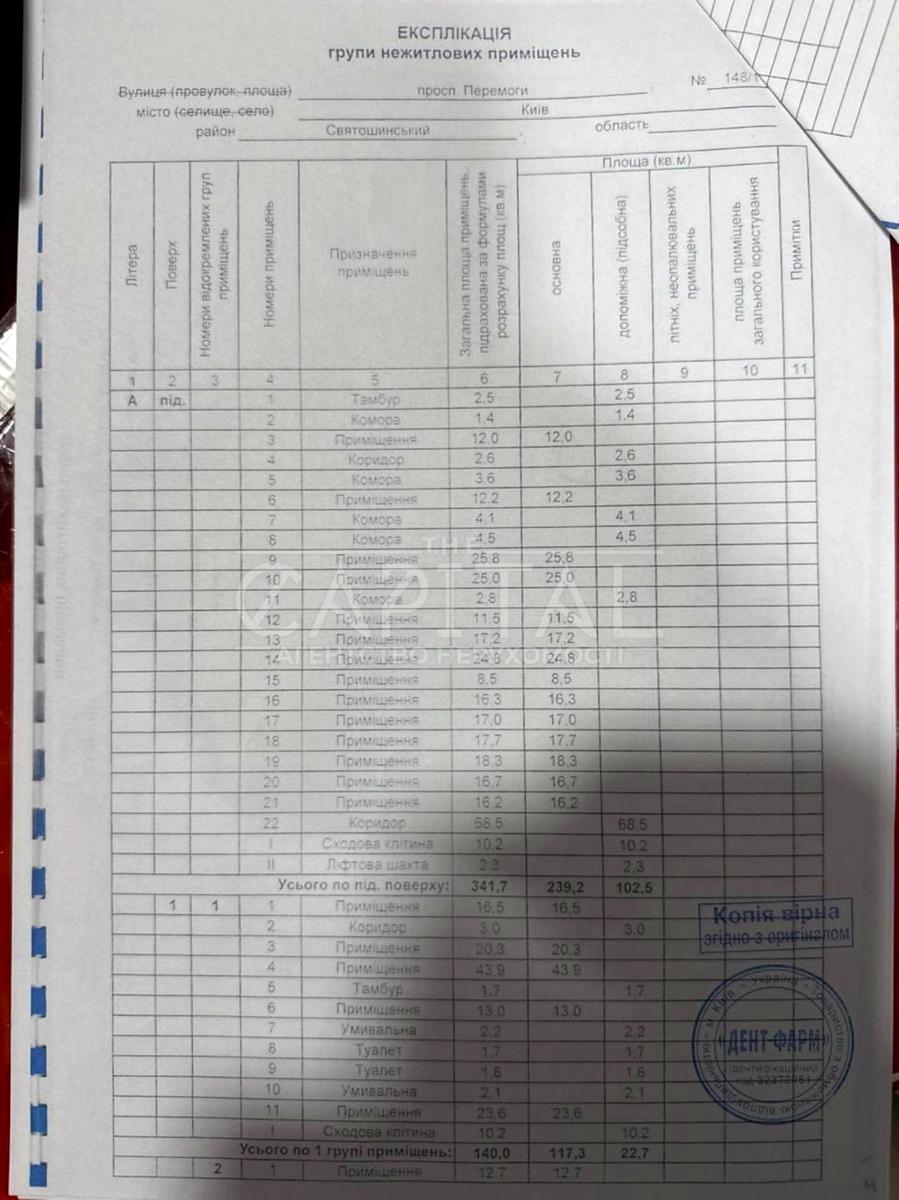 ЕКСПЛІКАЦІЯ
групи нежитлових приміщень
Вулиця (провулок, площа) просп. Перемоги № 148/1
місто (селище, село) Київ
район Святошинський область
Літера
Поверх
Номери відокремлених груп приміщень
Номери приміщень
Призначення приміщень
Загальна площа приміщень, підрахована за формулами розрахунку площ (кв.м)
Площа (кв.м)
основна
допоміжна (підсобна)
літніх, неопалювальних приміщень
площа приміщень загального користування
Примітки
1 2 3 4 5 6 7 8 9 10 11
А під. 1 Тамбур 2,5 2,5
2 Комора 1,4 1,4
3 Приміщення 12,0 12,0
4 Коридор 2,6 2,6
5 Комора 3,6 3,6
6 Приміщення 12,2 12,2
7 Комора 4,1 4,1
8 Комора 4,5 4,5
9 Приміщення 25,8 25,8
10 Приміщення 25,0 25,0
11 Комора 2,8 2,8
12 Приміщення 11,5 11,5
13 Приміщення 17,2 17,2
14 Приміщення 24,8 24,8
15 Приміщення 8,5 8,5
16 Приміщення 16,3 16,3
17 Приміщення 17,0 17,0
18 Приміщення 17,7 17,7
19 Приміщення 18,3 18,3
20 Приміщення 16,7 16,7
21 Приміщення 16,2 16,2
22 Коридор 68,5 68,5
I Сходова клітина 10,2 10,2
II Ліфтова шахта 2,3 2,3
Усього по під. поверху: 341,7 239,2 102,5
1 1 1 Приміщення 16,5 16,5
2 Коридор 3,0 3,0
3 Приміщення 20,3 20,3
4 Приміщення 43,9 43,9
5 Тамбур 1,7 1,7
6 Приміщення 13,0 13,0
7 Умивальна 2,2 2,2
8 Туалет 1,7 1,7
9 Туалет 1,8 1,8
10 Умивальна 2,1 2,1
11 Приміщення 23,6 23,6
I Сходова клітина 10,2 10,2
Усього по 1 групі приміщень: 140,0 117,3 22,7
2 1 Приміщення 12,7 12,7
THE
CAPITAL
АГЕНТСТВО НЕРУХОМОСТІ
Копія вірна
згідно з оригіналом
м. Київ * Україна * Товариство з обмеженою відповідальністю
«ДЕНТ-ФАРМ»
Ідентифікаційний
код 32372951